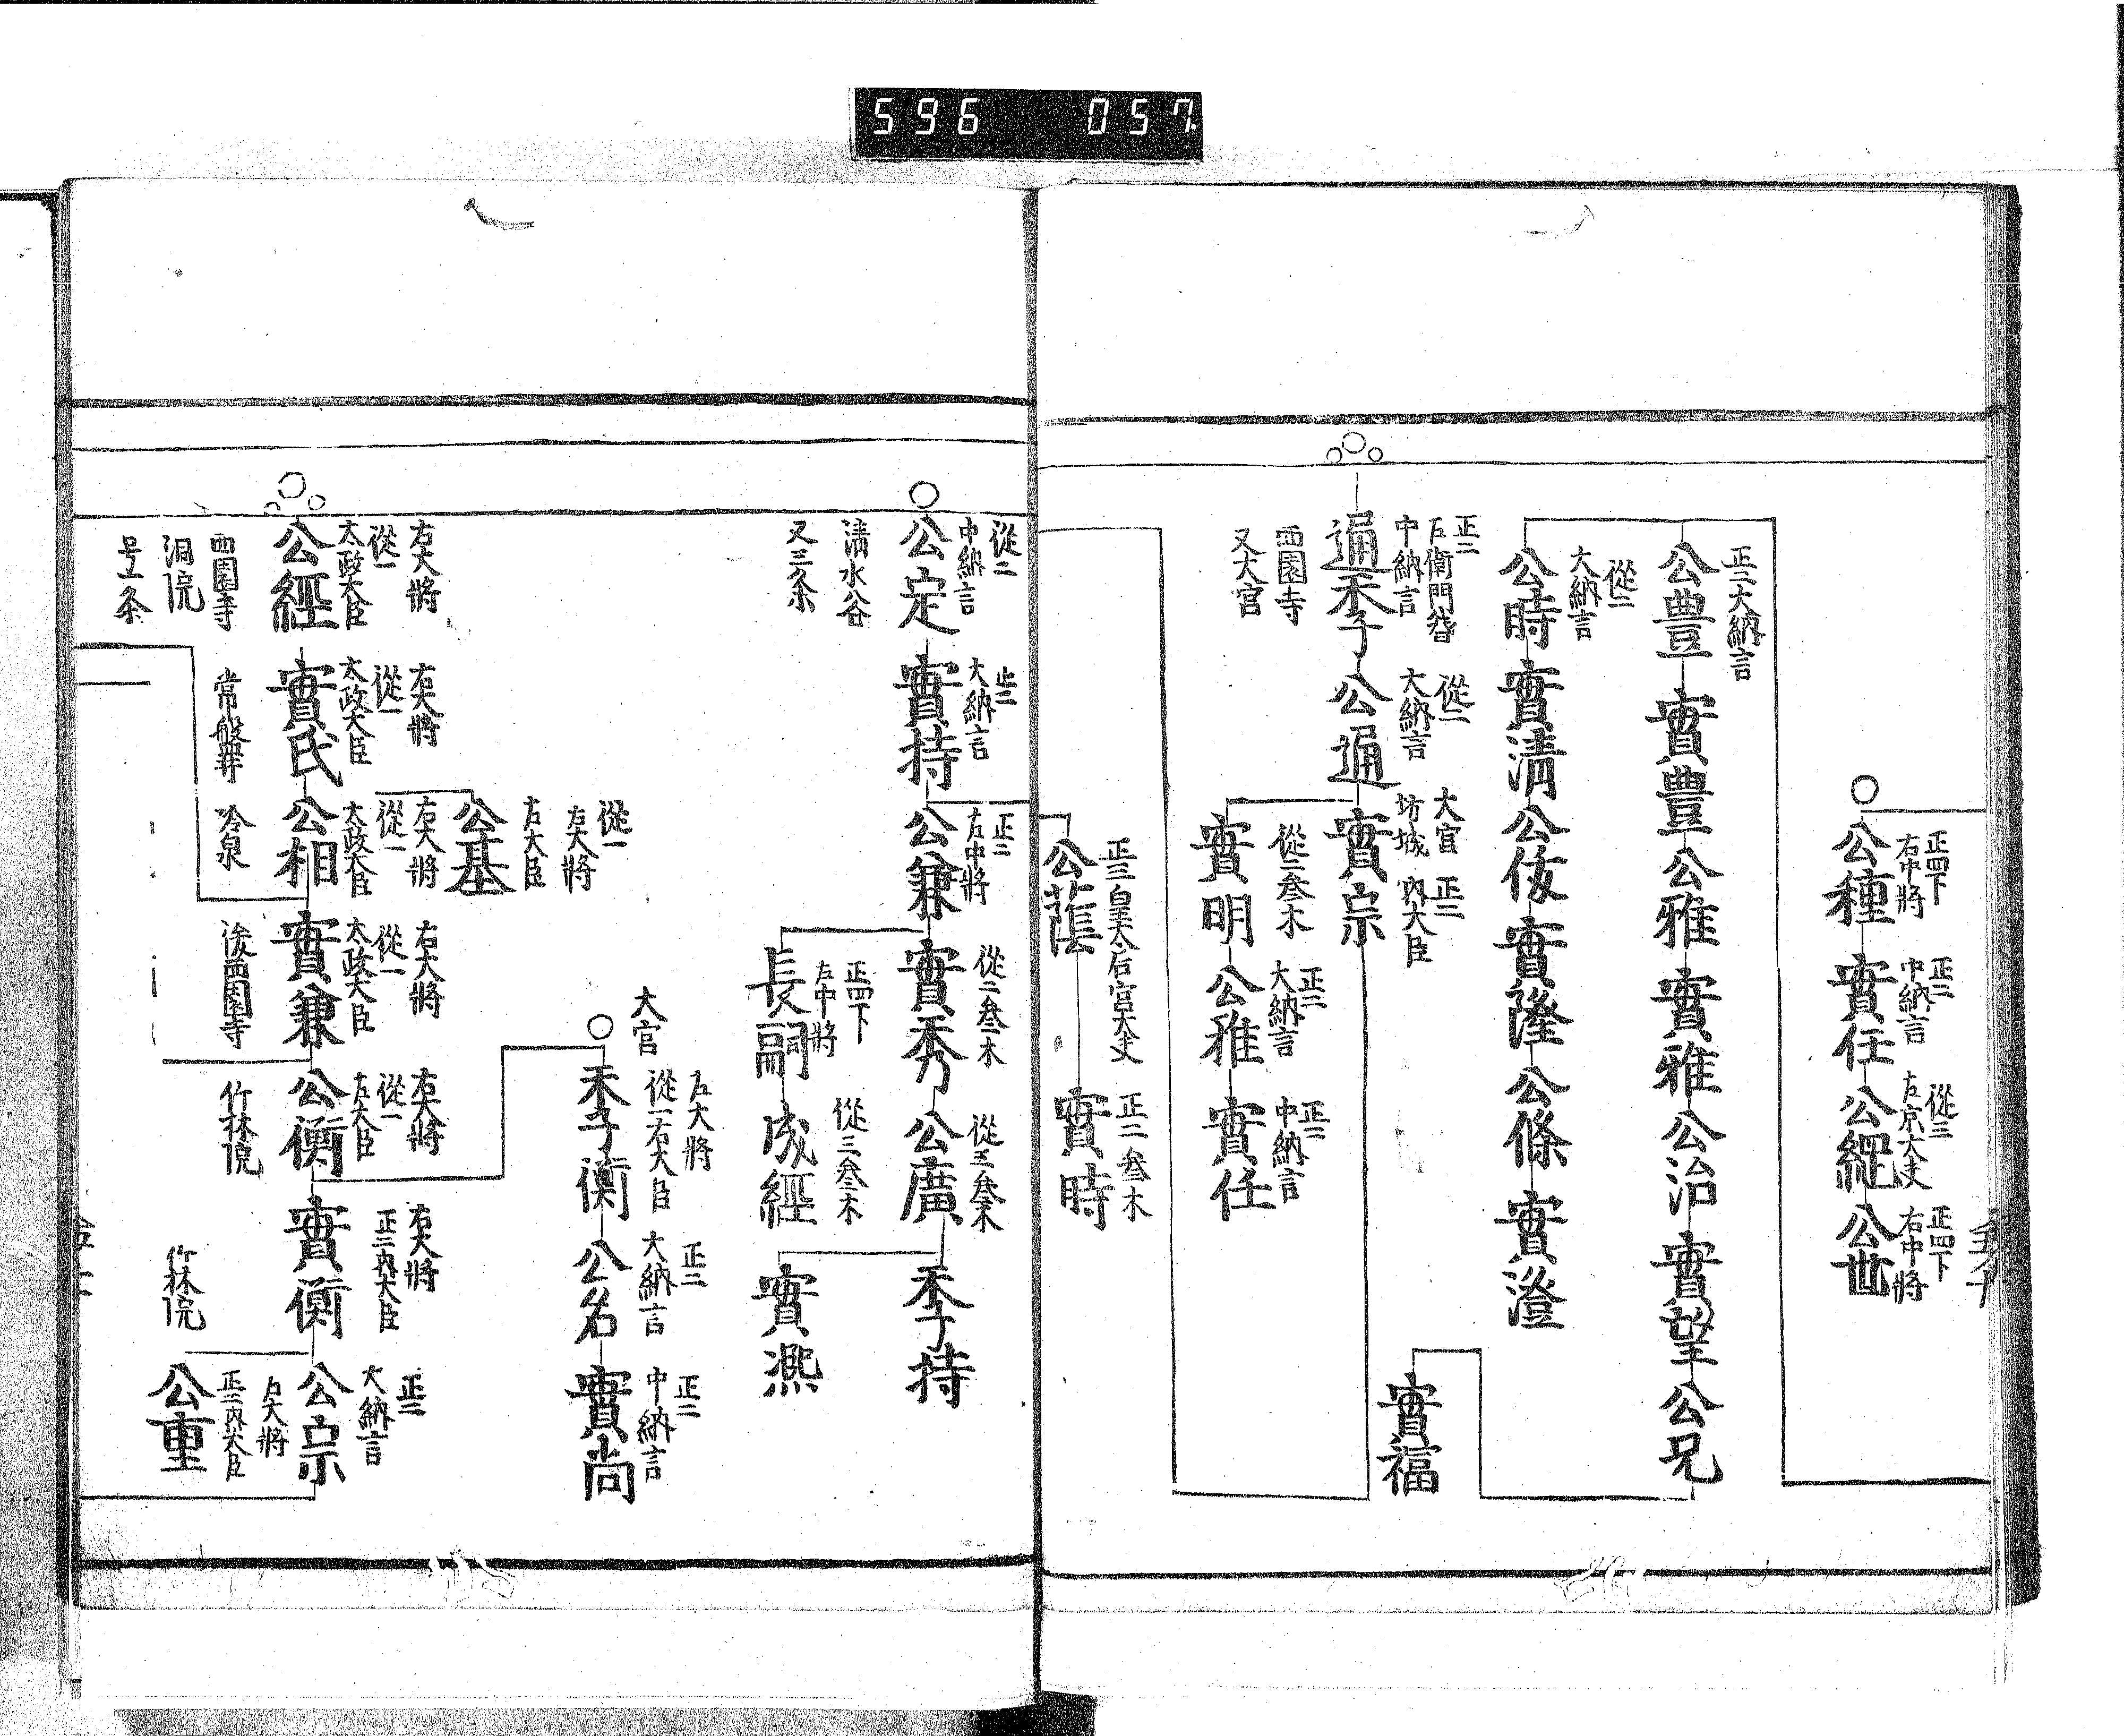 596 057
正四下
右中將
公種
正二
中納言
實任
從三
左京大夫
公縕
正四下
右中將
公世
正二大納言
公豊 實豊 公雅 實雅 公治 實望 公兄
實福
從二
大納言
公時 實清 公侅 實隆 公條 實澄
正二
左衛門督
中納言
通季
西園寺
又大宮
從二
大納言
公通
大宮
坊城
正二
內大臣
實宗
從二叅木
實明
正二
大納言
公雅
正二
中納言
實任
正三皇太后宮大夫
公蔭
正二叅木
實時
從二
中納言
公定
清水谷
又三条
正二
大納言
實持
正二
左中將
公兼
從二叅木
實秀
從三叅木
公廣
季持
實凞
正四下
左中將
長嗣
從三叅木
成經
大宮
左大將
從一右大臣
季衡
正二
大納言
公名
正二
中納言
實尚
從一
左大將
右大臣
公基
右大將
從一
太政大臣
公經
西園寺
洞院
号一条
右大將
從一
太政大臣
實氏
常盤井
右大將
從一
太政大臣
公相
冷泉
右大將
從一
太政大臣
實兼
後西園寺
右大將
從一
左大臣
公衡
竹林院
右大將
正二內大臣
實衡
竹林院
正二
大納言
公宗
右大將
正二內大臣
公重